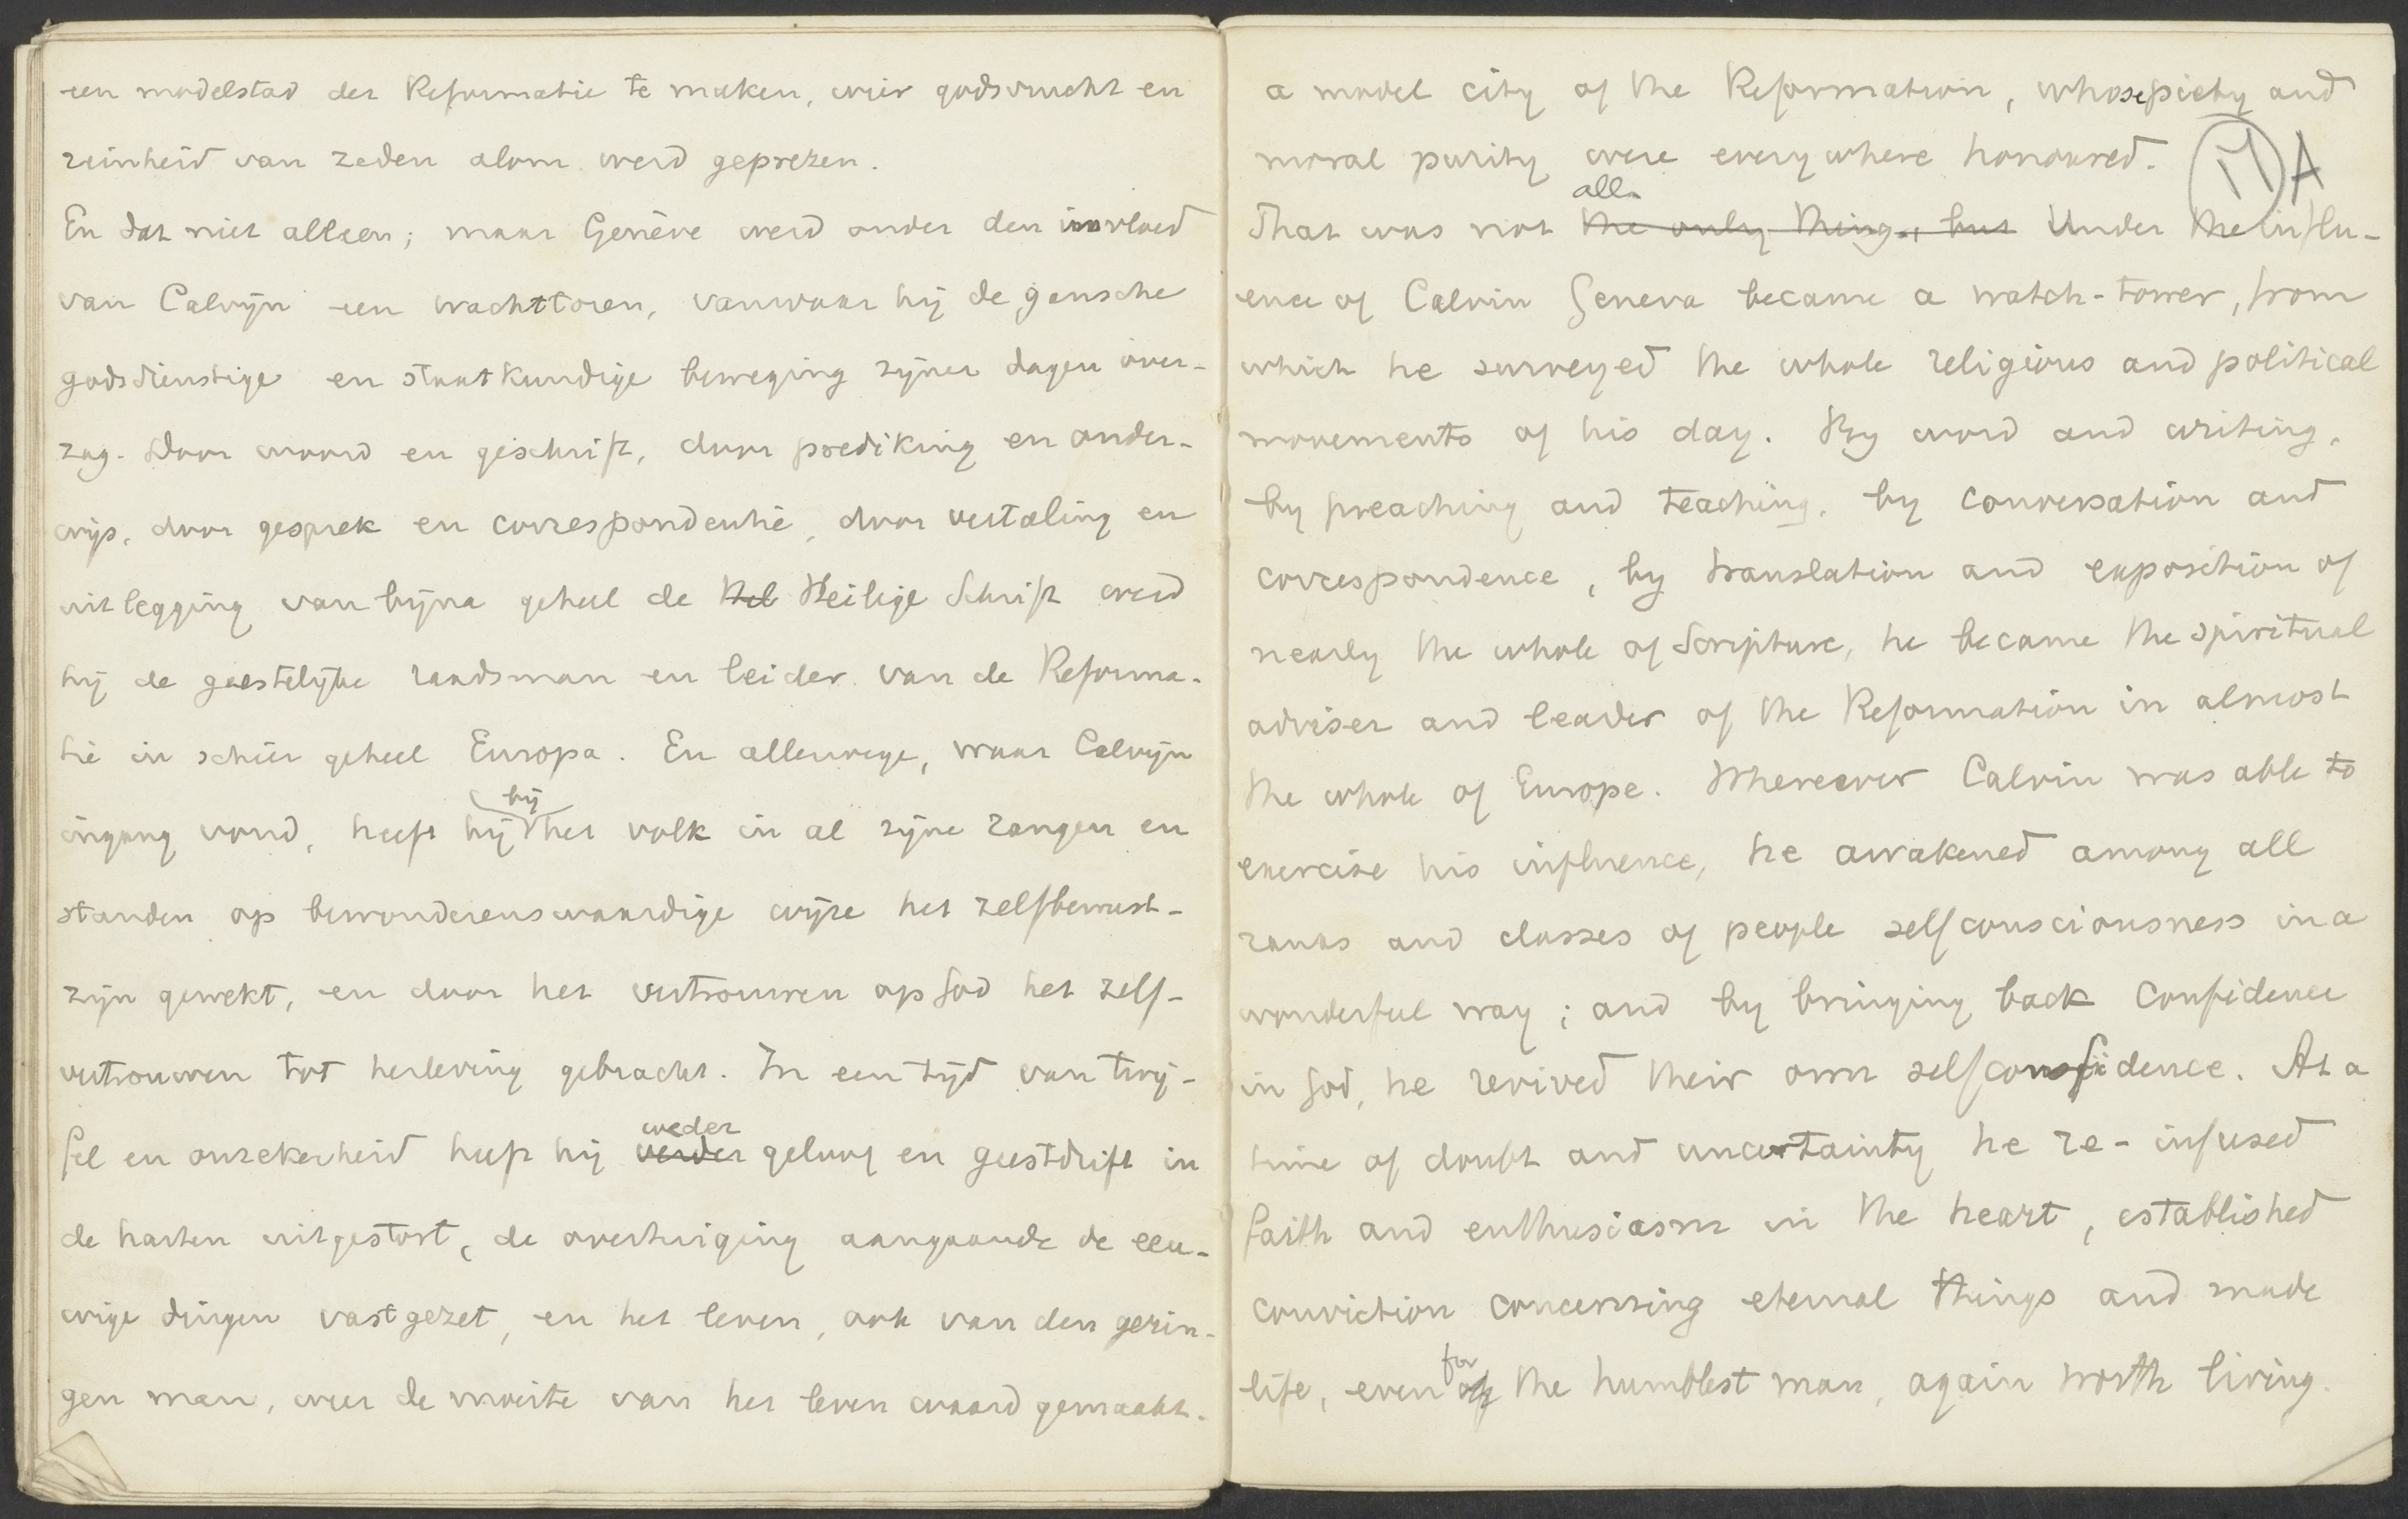 een modelstad der Reformatie te maken, wier godsvrucht en
reinheid van zeden alom werd geprezen.
En dat niet alleen; maar Genève werd onder den invloed
van Calvijn een wachttoren, vanwaar hij de gansche
godsdienstige en staatkundige beweging zijner dagen over-
zag. Door woord en geschrift, door prediking en onder-
wijs, door gesprek en correspondentie, door vertaling en
uitlegging van bijna geheel de Hel Heilige Schrift werd
hij de geestelijke raadsman en leider van de Reforma-
tie in schier geheel Europa. En allerwege, waar Calvijn
bij
ingang vond, heeft hij het volk in al zijne rangen en
standen op bewonderenswaardige wijze het zelfbewust-
zijn gewekt, en door het vertrouwen op God het zelf-
vertrouwen tot herleving gebracht. In een tijd van twij-
weder
fel en onzekerheid heeft hij verder geloof en geestdrift in
de harten uitgestort, de overtuiging aangaande de eeu-
wige dingen vastgezet, en het leven, ook van den gerin-
gen man, weer de moeite van het leven waard gemaakt.
a model city of the Reformation, whose piety and
moral purity were everywhere honoured.
A
all.
That was not the only thing, but Under the influ-
ence of Calvin Geneva became a watch-tower, from
which he surveyed the whole religious and political
movements of his day. By word and writing,
by preaching and teaching, by conversation and
correspondence, by translation and exposition of
nearly the whole of Scripture, he became the spiritual
adviser and leader of the Reformation in almost
the whole of Europe. Wherever Calvin was able to
exercise his influence, he awakened among all
ranks and classes of people selfconsciousness in a
wonderful way; and by bringing back confidence
in God, he revived their own selfconfidence. At a
time of doubt and uncertainty he re-infused
faith and enthusiasm in the heart, established
conviction concerning eternal things and made
for
life, even of the humblest man, again worth living.